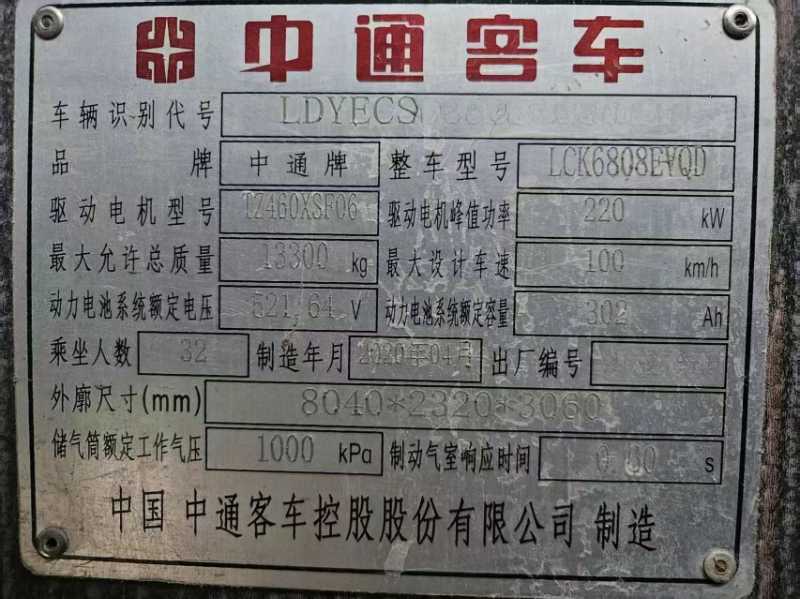 中通客车
车辆识别代号 LDYECS
品牌 中通牌 整车型号 LCK6808EVQD
驱动电机型号 TZ460XSF06 驱动电机峰值功率 220 kW
最大允许总质量 13300 kg 最大设计车速 100 km/h
动力电池系统额定电压 521.64 V 动力电池系统额定容量 302 Ah
乘坐人数 32 制造年月 2020年04月 出厂编号
外廓尺寸(mm) 8040*2320*3060
储气筒额定工作气压 1000 kPa 制动气室响应时间 s
中国 中通客车控股股份有限公司 制造